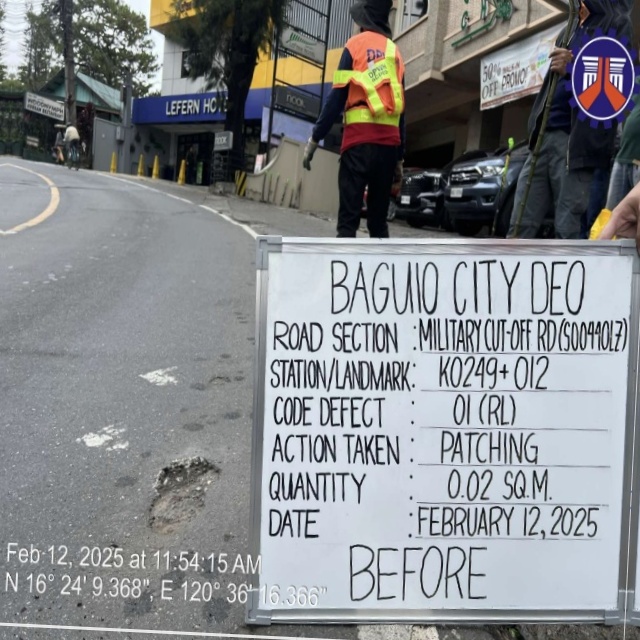 LEFERN HOT
50%
OFF PROMO!
BAGUIO CITY DEO
ROAD SECTION : MILITARY CUT-OFF RD (S00440LZ)
STATION/LANDMARK: K0249+012
CODE DEFECT : 01 (RL)
ACTION TAKEN : PATCHING
QUANTITY : 0.02 SQ.M.
DATE : FEBRUARY 12, 2025
BEFORE
Feb 12, 2025 at 11:54:15 AM
N 16° 24' 9.368", E 120° 36' 16.366"